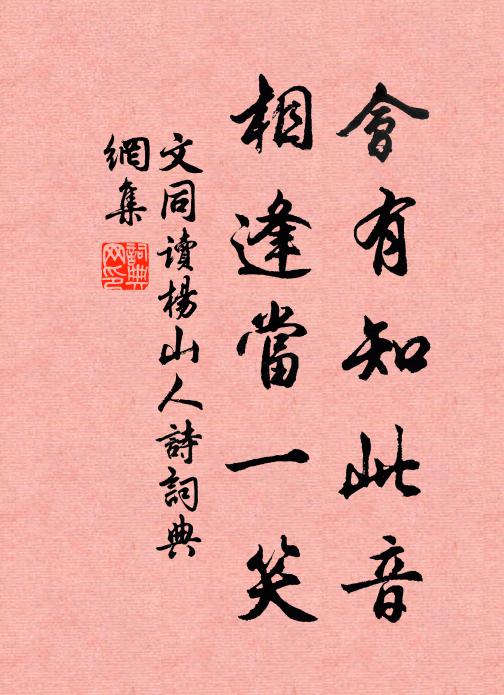 會有知此音
相逢當一笑
文同讀楊山人詩詞典
網集
詞典
网印